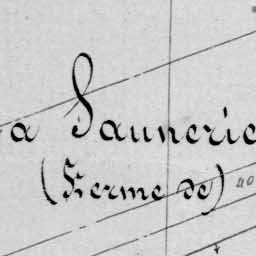 a Saunerie
(Ferme de) 40